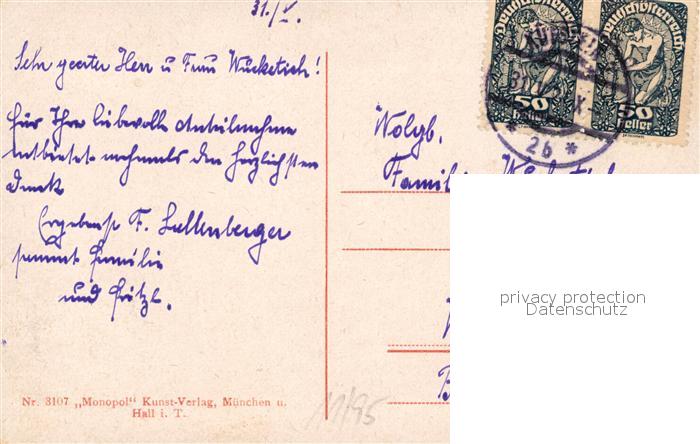 31./V.
Sehr geerter Herr u Frau Wucketich!
für Ihre liebevolle Anteilnahme
entbietet nochmals den herzlichsten
Dank
Ergebenst F. Lellenberger
sammt Familie
und Fritzl.
Nr. 3107 „Monopol" Kunst-Verlag, München u.
Hall i. T.
11/95
Deutschösterreich
50
heller
Deutschösterreich
50
heller
KUFSTEIN
* 2b *
Wolgb.
Familie
privacy protection
Datenschutz